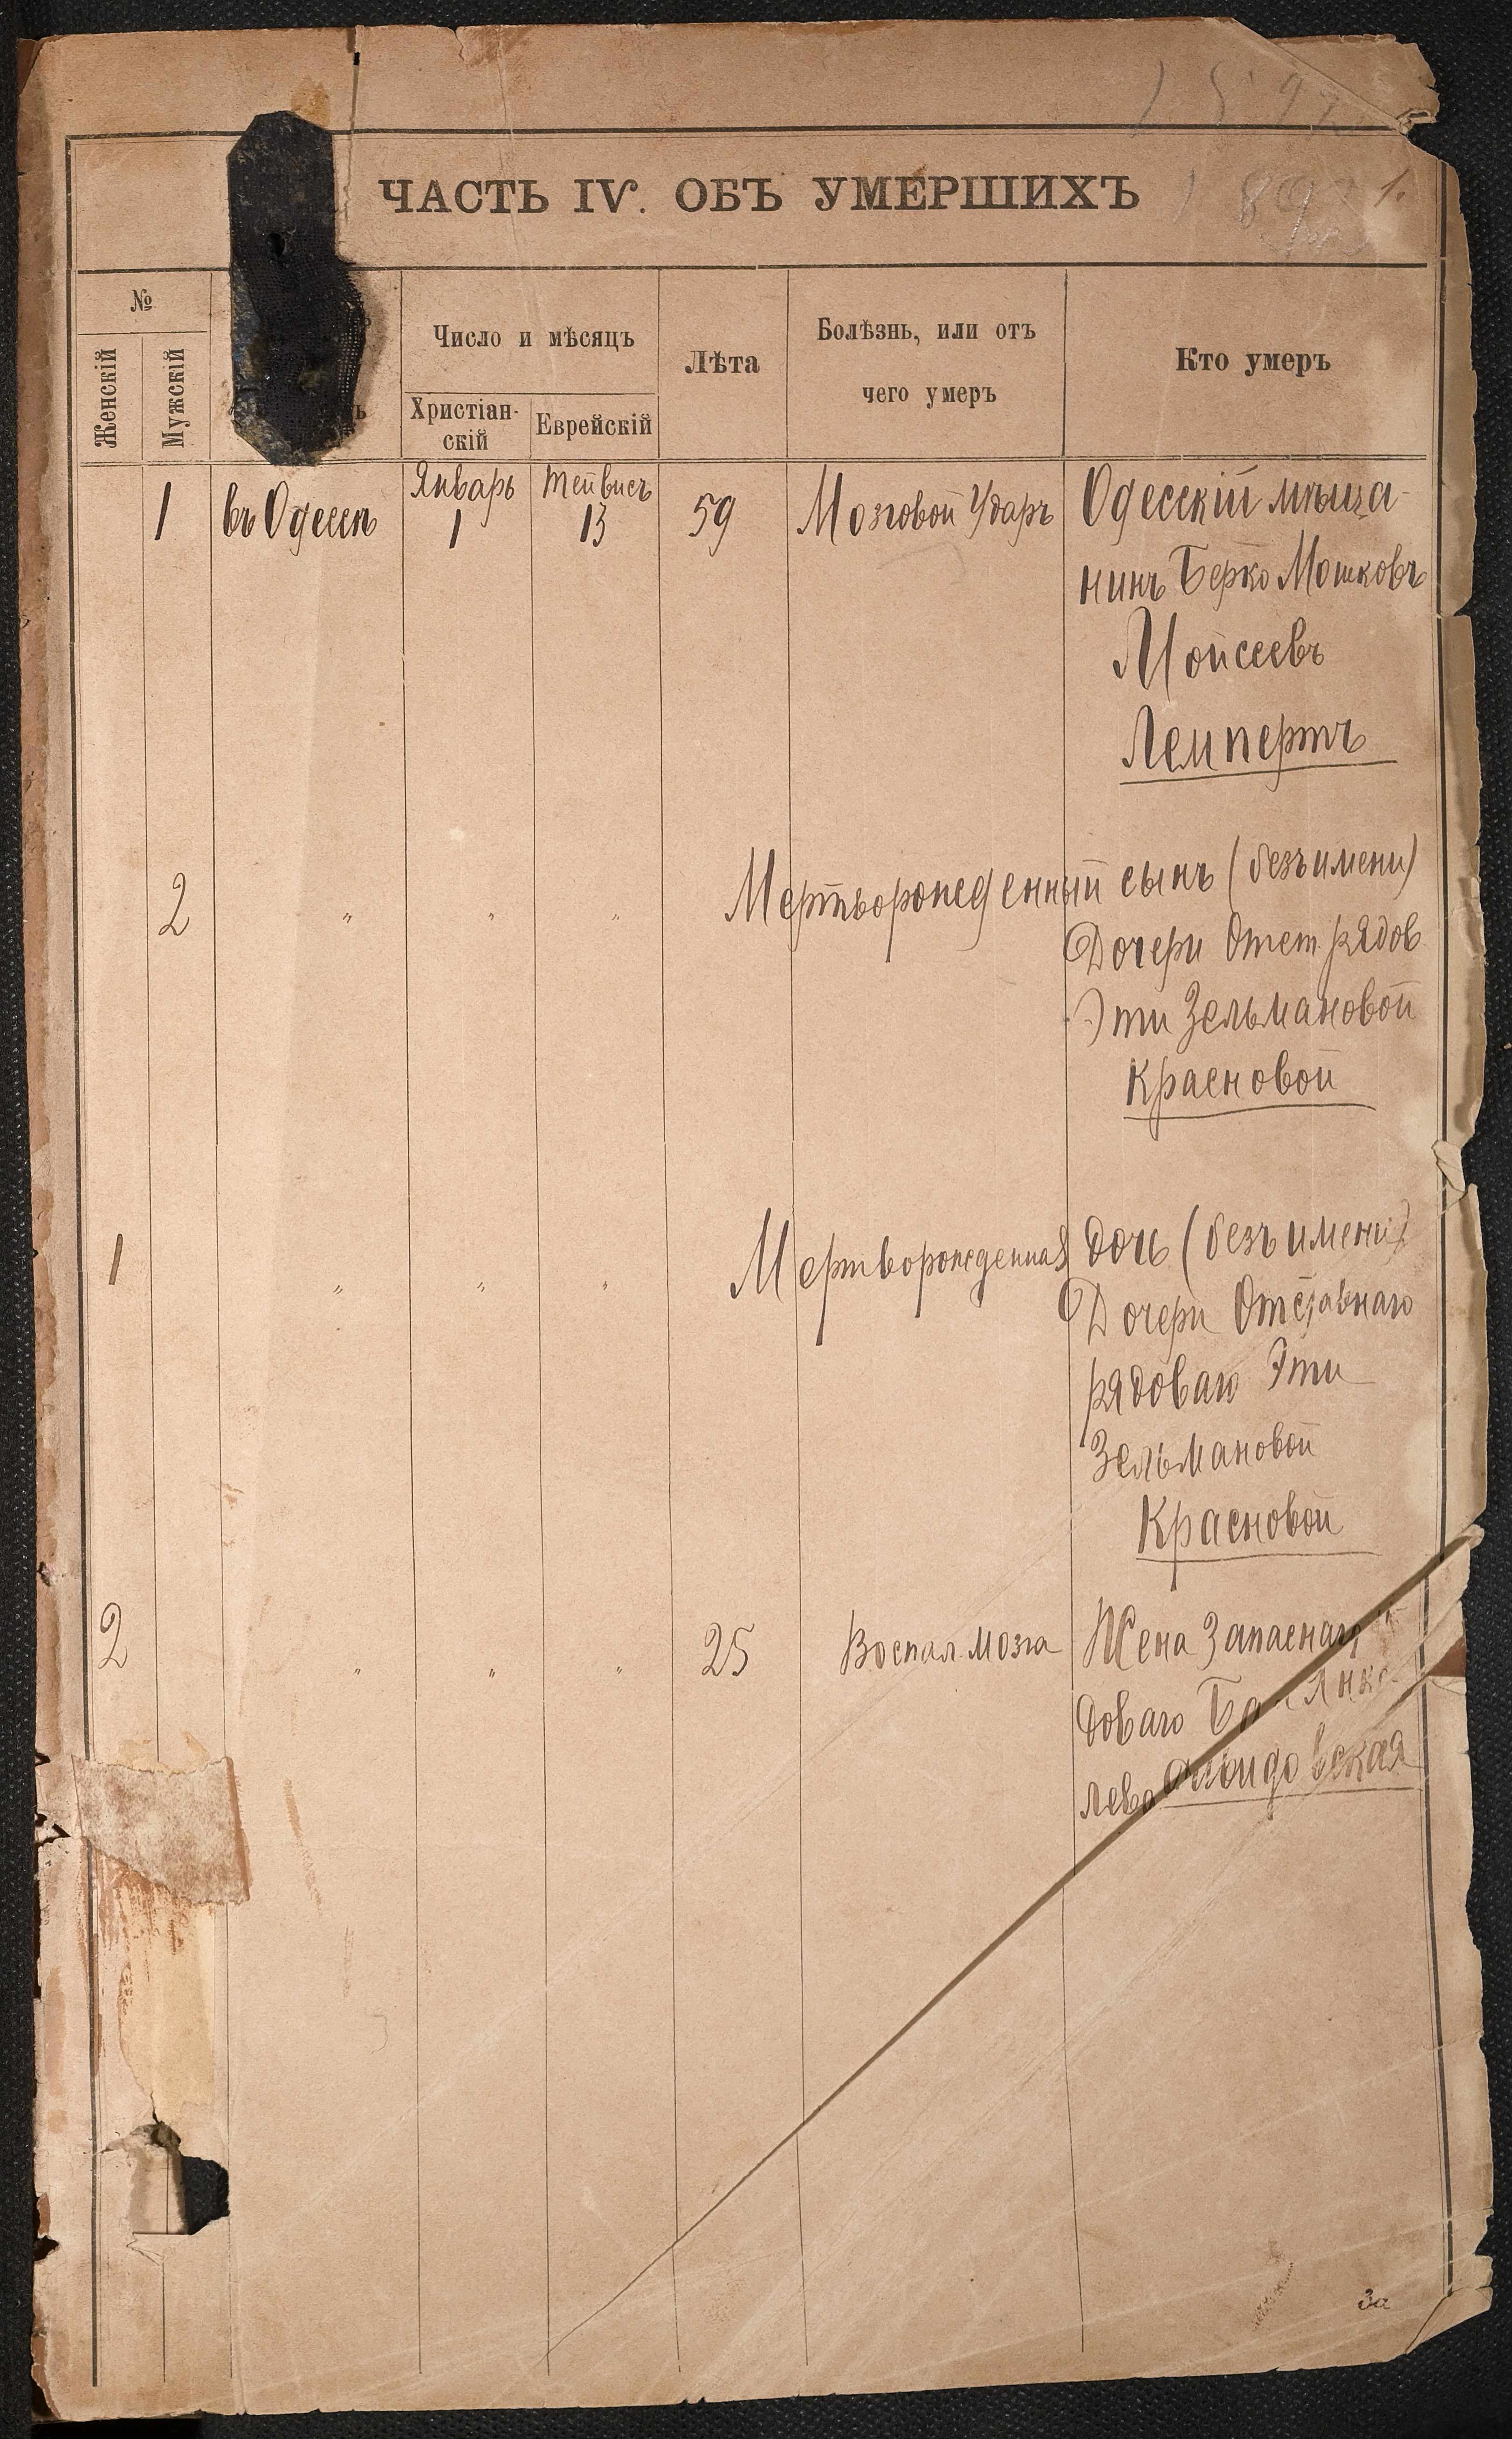 ЧАСТЬ IV. ОБЪ УМЕРШИХЪ
№
Женскій
Мужскій
Число и мѣсяцъ
Христіан-
скій
Еврейскій
Лѣта
Болѣзнь, или отъ
чего умеръ
Кто умеръ
1 въ Одессѣ Январь 1 Тейвисъ 13 59 Мозговой Ударъ Одесскій мѣща-
нинъ Берко Мошковъ
Мойсеевъ
Лемпертъ
2 " " " Мертворожденный сынъ (безъ имени)
Дочери Отст рядов
Эти Зельмановой
Красновой
1 " " " Мертворожденная дочь (безъ имени)
Дочери Отставнаго
рядоваго Эти
Зельмановой
Красновой
2 " " " 25 Воспал. мозга Жена Запаснаго
доваго
За